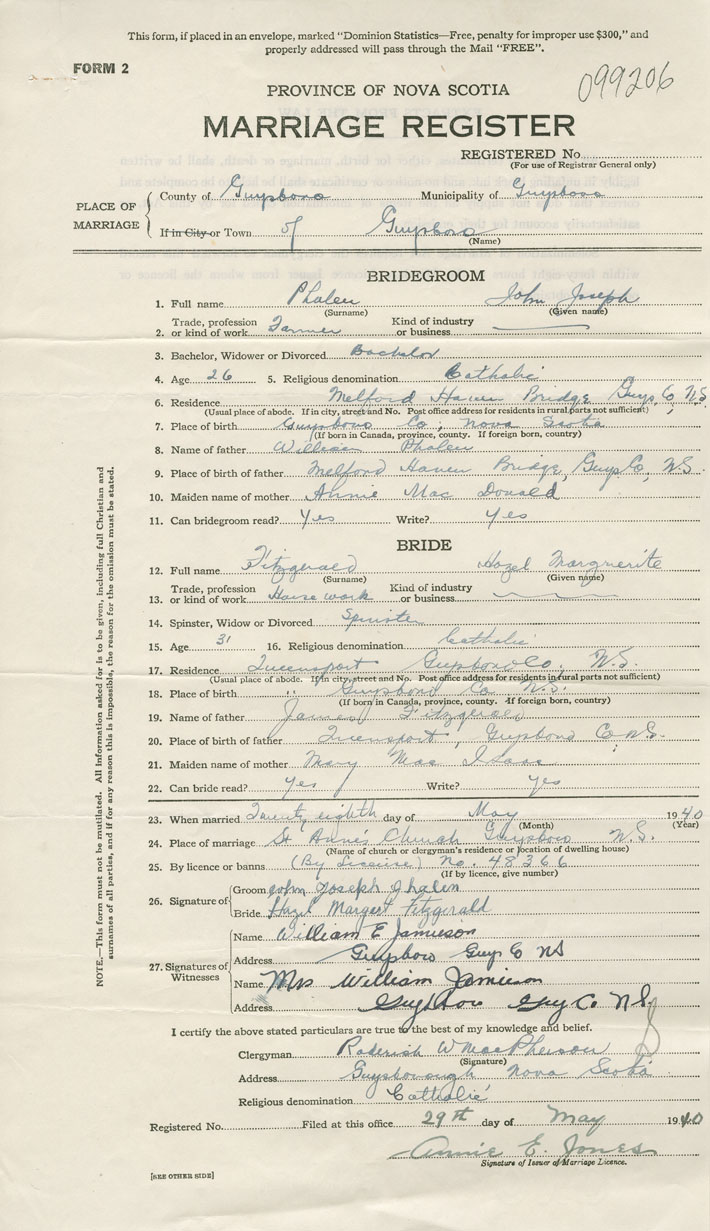 This form, if placed in an envelope, marked "Dominion Statistics—Free, penalty for improper use $300," and
properly addressed will pass through the Mail "FREE".
FORM 2
099206
PROVINCE OF NOVA SCOTIA
MARRIAGE REGISTER
REGISTERED No.
(For use of Registrar General only)
PLACE OF MARRIAGE
County of Guysboro Municipality of Guysboro
If in City or Town of Guysboro
(Name)
BRIDEGROOM
1. Full name Phalen John Joseph
(Surname) (Given name)
2. Trade, profession or kind of work Farmer Kind of industry or business
3. Bachelor, Widower or Divorced Bachelor
4. Age 26 5. Religious denomination Catholic
6. Residence Melford Haven Bridge Guys. Co N.S.
(Usual place of abode. If in city, street and No. Post office address for residents in rural parts not sufficient)
7. Place of birth Guysboro Co, Nova Scotia
(If born in Canada, province, county. If foreign born, country)
8. Name of father William Phalen
9. Place of father Melford Haven Bridge, Guys Co, N.S.
10. Maiden name of mother Annie Mac Donald
11. Can bridegroom read? Yes Write? Yes
BRIDE
12. Full name Fitzgerald Hazel Marguerite
(Surname) (Given name)
13. Trade, profession or kind of work House work Kind of industry or business
14. Spinster, Widow or Divorced Spinster
15. Age 31 16. Religious denomination Catholic
17. Residence Queensport Guysboro Co, N.S.
(Usual place of abode. If in city, street and No. Post office address for residents in rural parts not sufficient)
18. Place of birth " Guysboro Co N.S.
(If born in Canada, province, county. If foreign born, country)
19. Name of father James Fitzgerald
20. Place of birth of father Queensport, Guysboro Co N.S.
21. Maiden name of mother Mary Mac Isaac
22. Can bride read? Yes Write? Yes
23. When married Twenty eighth day of May 1940
(Month) (Year)
24. Place of marriage St Anne's Church Guysboro N.S.
(Name of church or clergyman's residence or location of dwelling house)
25. By licence or banns (By Licence) No. 48366
(If by licence, give number)
26. Signature of
Groom John Joseph Phalen
Bride Hazel Margert Fitzgerald
27. Signatures of Witnesses
Name William E Jamieson
Address Guysboro Guys Co NS
Name Mrs William Jamieson
Address Guysboro Guy Co N S
I certify the above stated particulars are true to the best of my knowledge and belief.
Clergyman Roderick W MacPherson
(Signature)
Address Guysborough Nova Scotia
Religious denomination Catholic
Registered No. Filed at this office 29th day of May 1940
Annie E. Jones
Signature of Issuer of Marriage Licence.
[SEE OTHER SIDE]
NOTE,—This form must not be mutilated. All information asked for is to be given, including full Christian and
surnames of all parties, and if for any reason this is impossible, the reason for the omission must be stated.